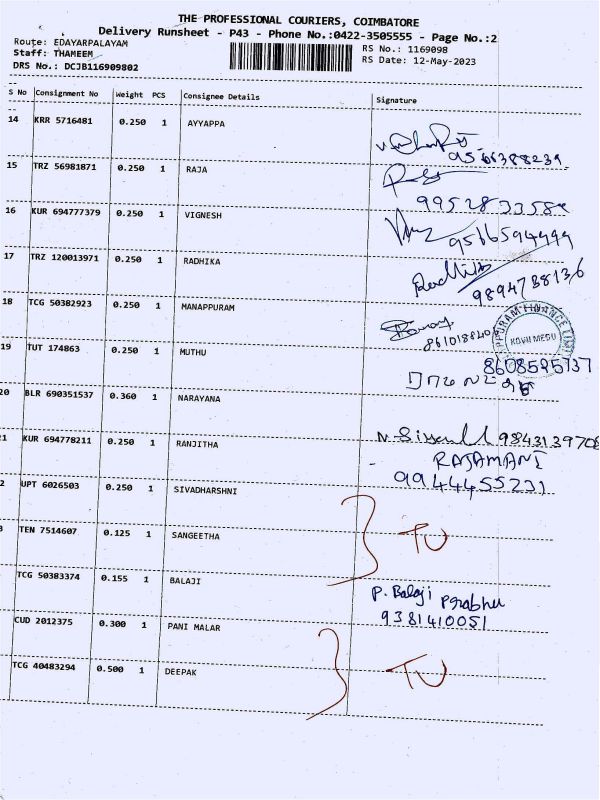 THE PROFESSIONAL COURIERS, COIMBATORE
Delivery Runsheet - P43 - Phone No.:0422-3505555 - Page No.:2
Route: EDAYARPALAYAM
Staff: THAMEEM
DRS No.: DCJB116909802
RS No.: 1169098
RS Date: 12-May-2023
S No Consignment No Weight PCS Consignee Details Signature
14 KRR 5716481 0.250 1 AYYAPPA
9566388239
15 TRZ 56981871 0.250 1 RAJA
16 KUR 694777379 0.250 1 VIGNESH
9566594499
17 TRZ 120013971 0.250 1 RADHIKA
Radhika
9894738136
18 TCG 50382923 0.250 1 MANAPPURAM
KOVILMEDU
19 TUT 174863 0.250 1 MUTHU
8608595737
20 BLR 690351537 0.360 1 NARAYANA
9843139708
21 KUR 694778211 0.250 1 RANJITHA
RAJAMANI
9944455231
2 UPT 6026503 0.250 1 SIVADHARSHNI
3 TEN 7514607 0.125 1 SANGEETHA
TCG 50383374 0.155 1 BALAJI
P. Balaji Prabhu
9381410051
CUD 2012375 0.300 1 PANI MALAR
TCG 40483294 0.500 1 DEEPAK